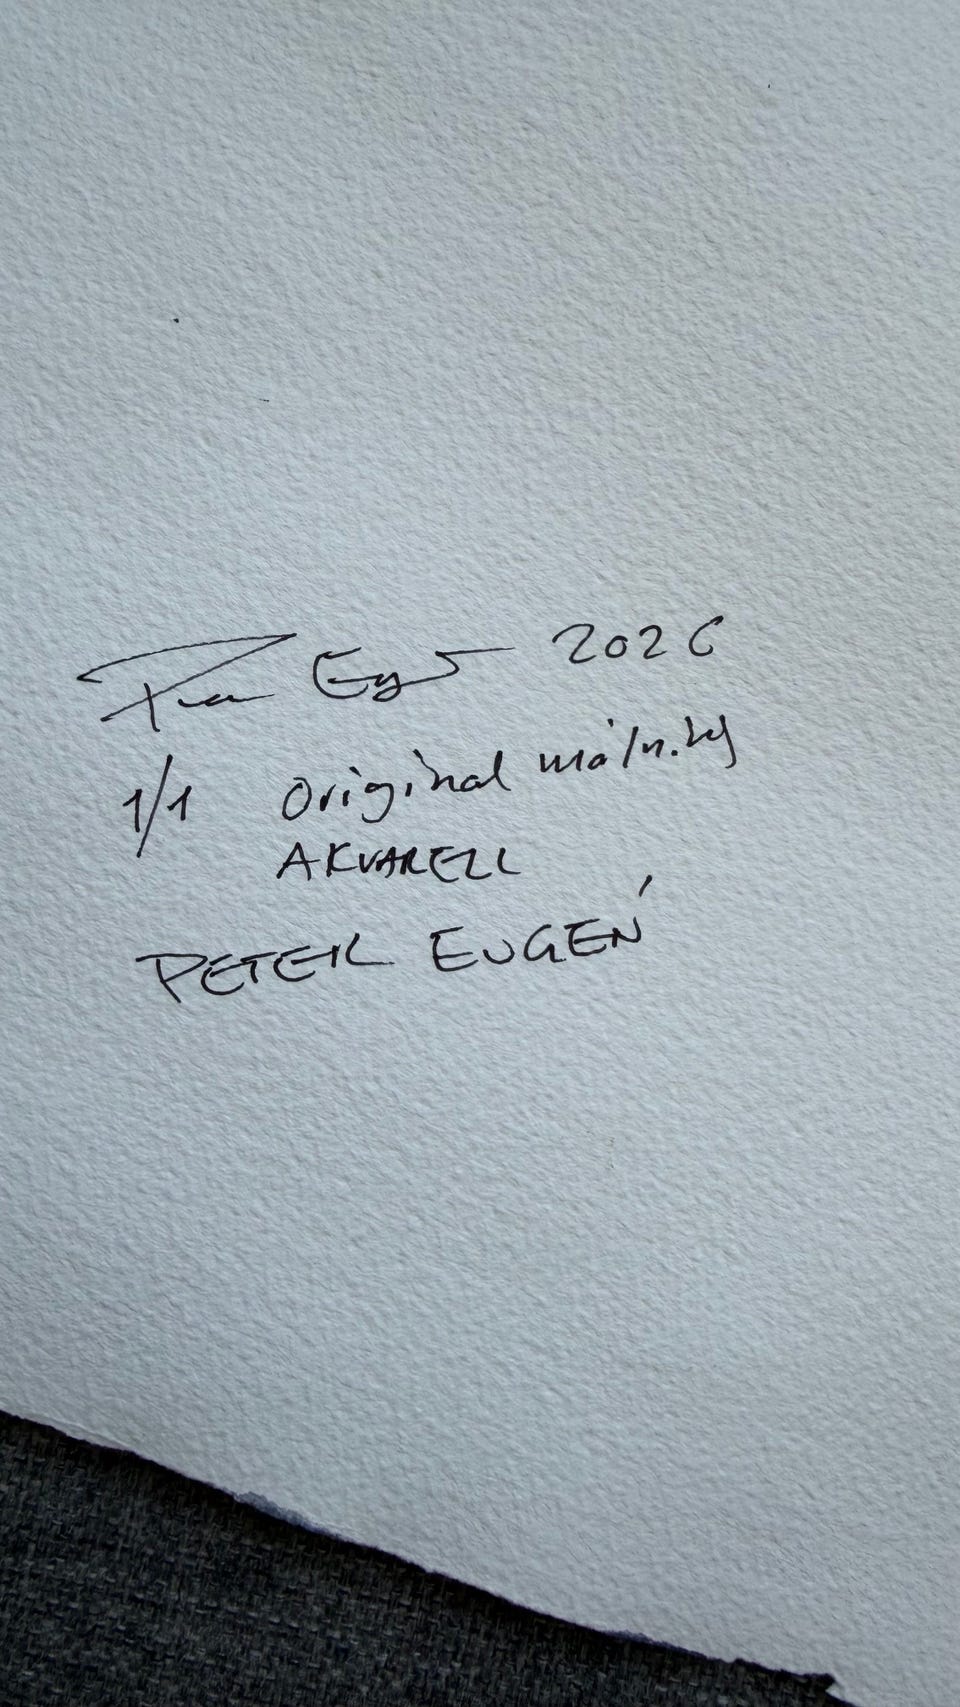 Peter Eugén 2026
1/1 Original målning
AKVARELL
PETER EUGÉN